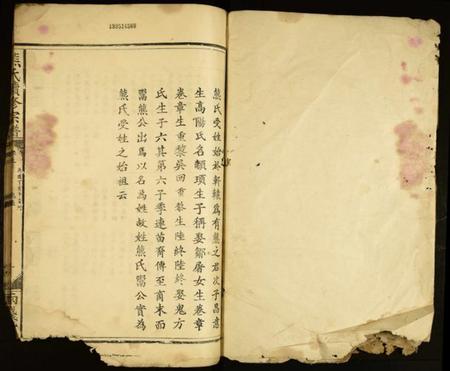 熊氏受姓始於軒轅爲有熊之君次子昌意
生高陽氏名顓頊生子稱娶鄒屠女生卷章
卷章生重黎吳回吳回生陸終陸終娶鬼方
氏生子六其第六子季連苗裔傳至商末而
鬻熊公出焉以名爲姓故姓熊氏鬻公實爲
熊氏受姓之始祖云
熊氏續修宗譜